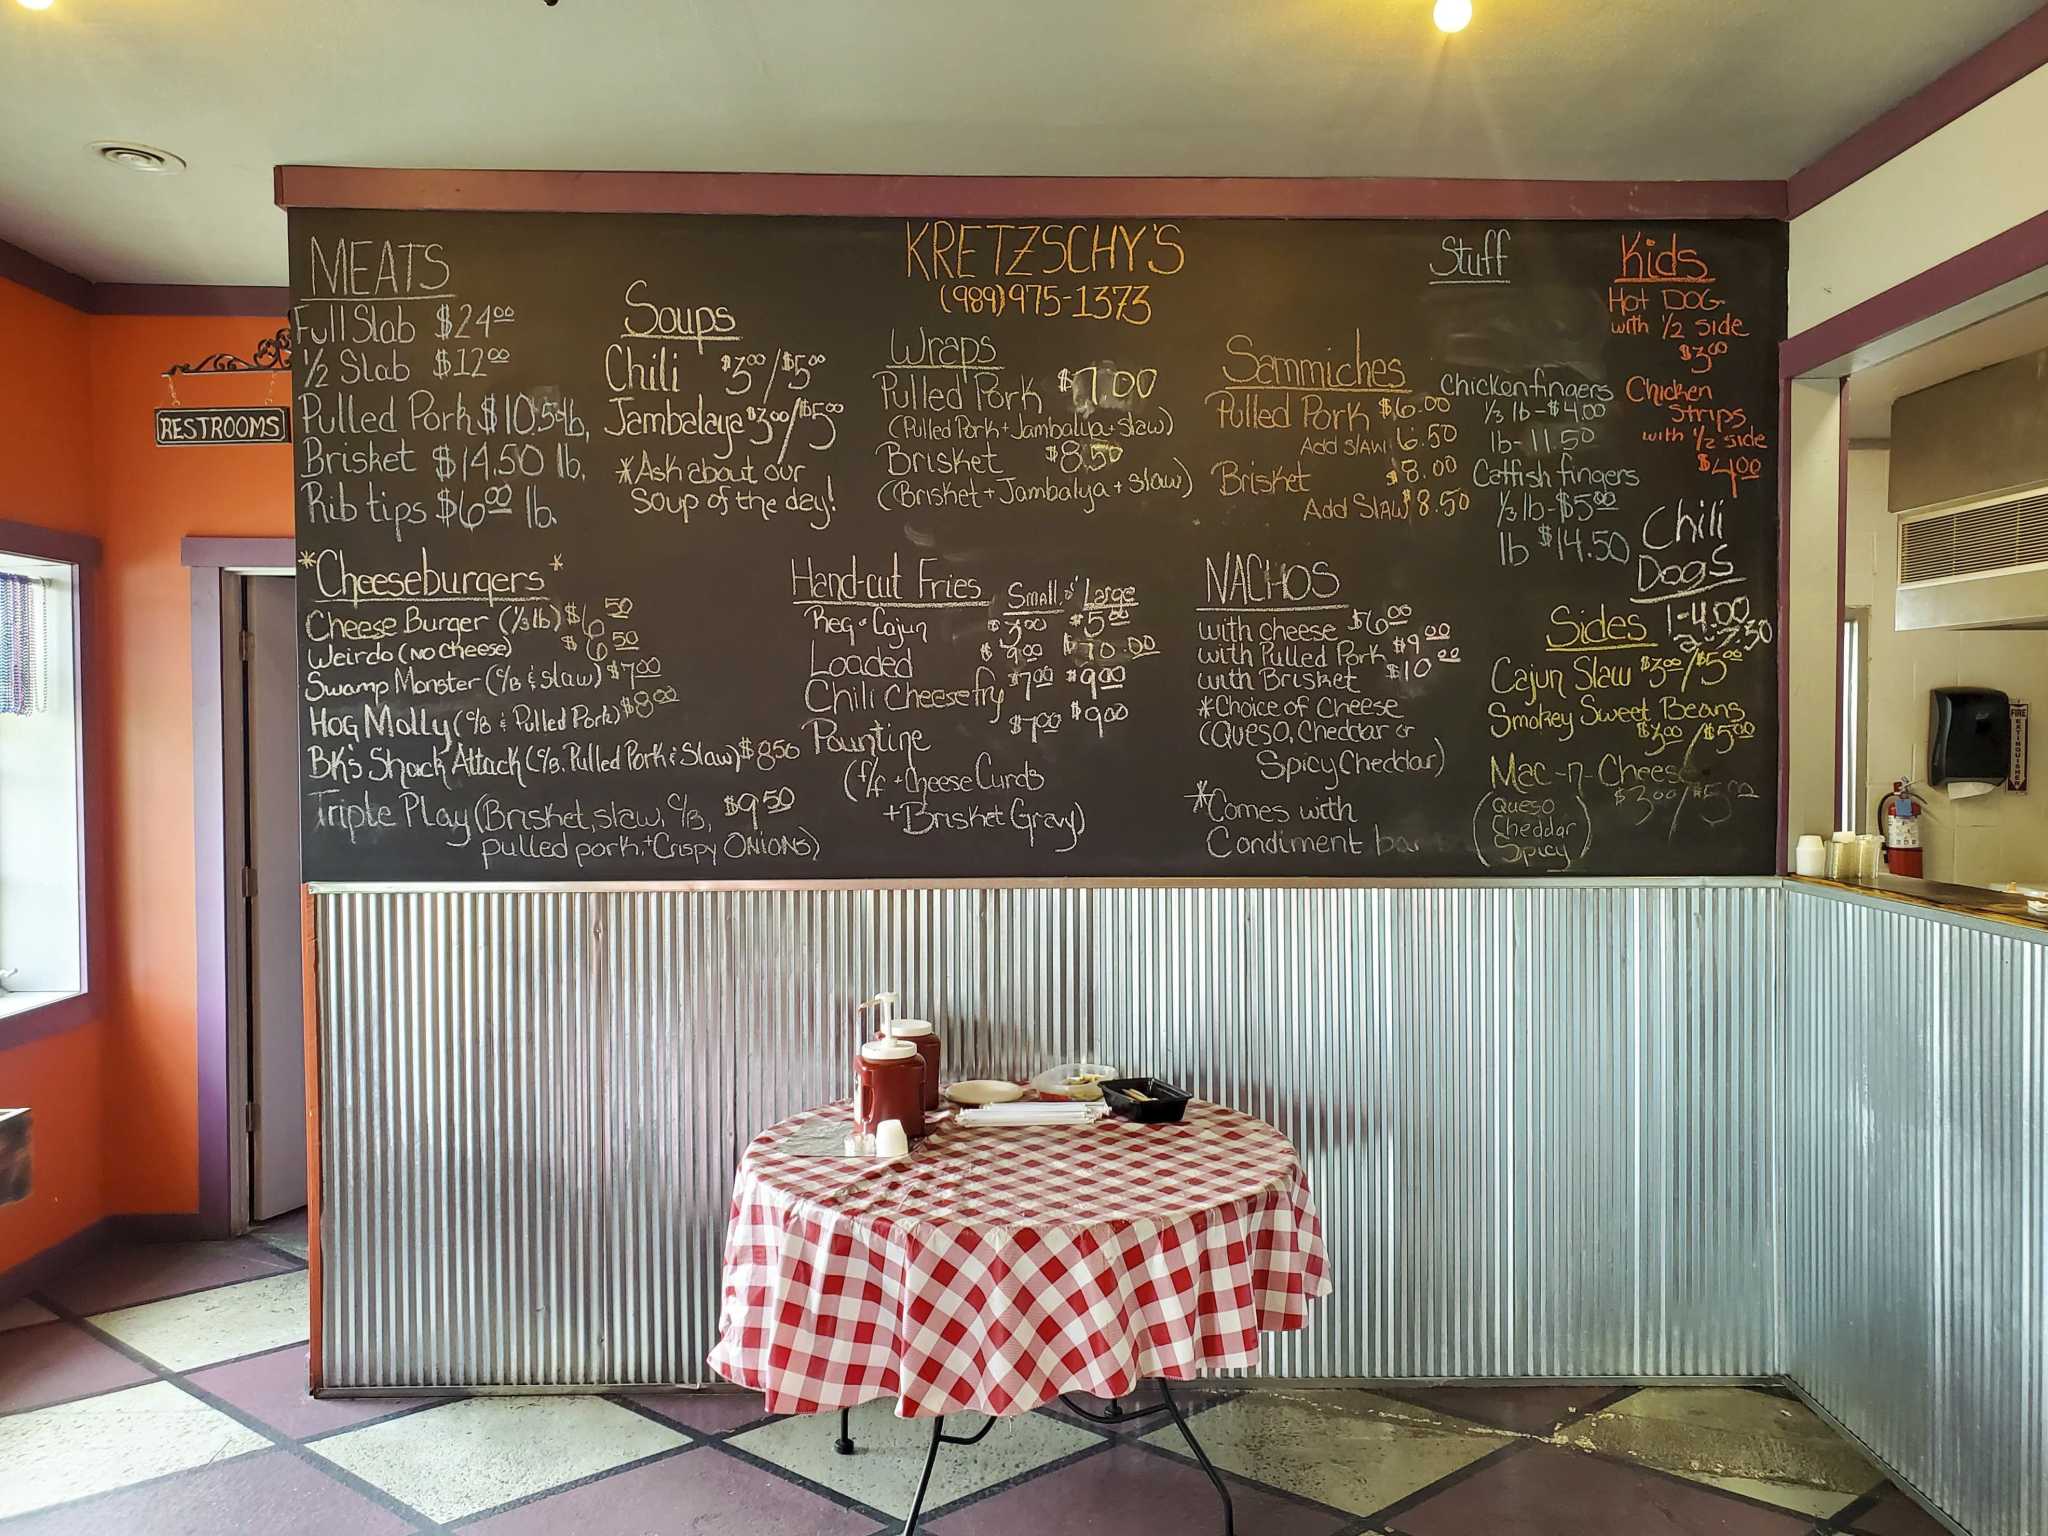 KRETZSCHY'S
(989) 975-1373
MEATS
Full Slab $24.00
1/2 Slab $12.00
Pulled Pork $10.5 lb.
Brisket $14.50 lb.
Rib tips $6.00 lb.
RESTROOMS
Soups
Chili $3.00/$5.00
Jambalaya $3.00/$5.00
*Ask about our
Soup of the day!
Wraps
Pulled Pork $7.00
(Pulled Pork + Jambalya + slaw)
Brisket $8.50
(Brisket + Jambalya + slaw)
Sammiches
Pulled Pork $6.00
Add slaw 6.50
Brisket $8.00
Add Slaw $8.50
Stuff
chicken fingers
1/3 lb - $4.00
lb - 11.50
Catfish fingers
1/3 lb - $5.00
lb $14.50
Kids
Hot DOG
with 1/2 side
$3.00
Chicken
Strips
with 1/2 side
$4.00
Chili
Dogs
1-4.00
2-7.50
*Cheeseburgers*
Cheese Burger (1/3 lb) $6.50
Weirdo (NO Cheese) $6.50
Swamp Monster (C/B & slaw) $7.00
Hog Molly (C/B & Pulled Pork) $8.00
BK's Shack Attack (C/B, Pulled Pork & Slaw) $8.50
Triple Play (Brisket, slaw, C/B, $9.50
pulled pork, + Crispy ONIONS)
Hand-cut Fries Small Large
Reg • Cajun $3.00 $5.00
Loaded $9.00 $10.00
Chili Cheese fry $7.00 $9.00
Pountine $7.00 $9.00
(f/f + Cheese Curds
+ Brisket Gravy)
NACHOS
with cheese $6.00
with Pulled Pork $9.00
with Brisket $10.00
*Choice of Cheese
(Queso, Cheddar or
Spicy Cheddar)
*Comes with
Condiment bar
Sides
Cajun Slaw $3.00/$5.00
Smokey Sweet Beans
$3.00/$5.00
Mac-n-Cheese
$3.00/$5.00
(Queso
Cheddar
Spicy)
FIRE
EXTINGUISHER